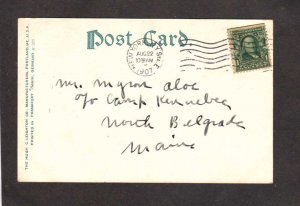 Post Card
AUG 22
Mr. Myron Aloe
c/o Camp Kennebec
North Belgrade
Maine
THE HUGH C. LEIGHTON CO. MANUFACTURERS, PORTLAND, ME., U.S.A.
PRINTED IN FRANKFORT